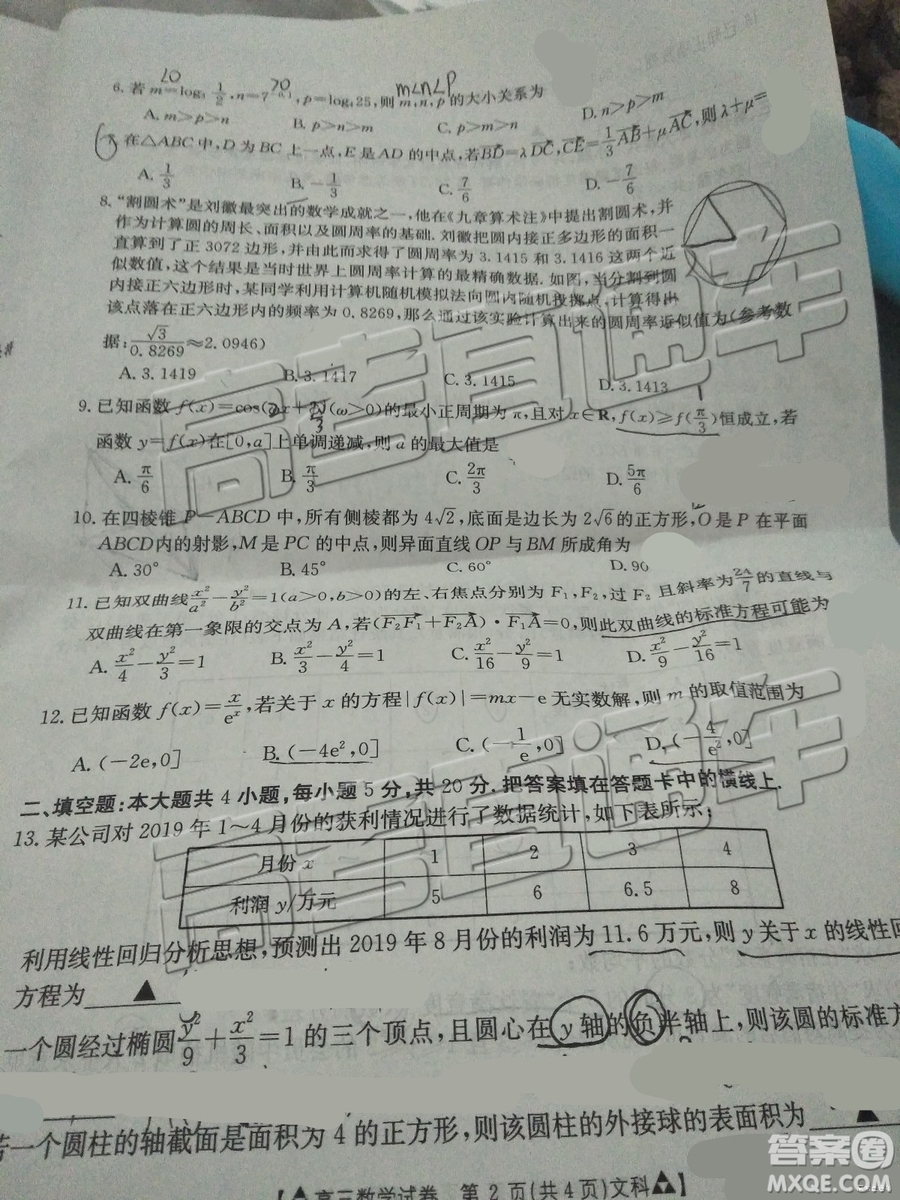 <0
>0
m<n<p
6. 若 m=log₅ 1/2, n=7^0.1, p=log₄25, 则 m,n,p 的大小关系为
A. m>p>n B. p>n>m C. p>m>n D. n>p>m
7. 在△ABC 中, D 为 BC 上一点, E 是 AD 的中点, 若 BD=λDC, CE=1/3 AB+μAC, 则 λ+μ=
A. 1/3 B. -1/3 C. 7/6 D. -7/6
8. “割圆术”是刘徽最突出的数学成就之一, 他在《九章算术注》中提出割圆术, 并
作为计算圆的周长、面积以及圆周率的基础. 刘徽把圆内接正多边形的面积一
直算到了正 3072 边形, 并由此而求得了圆周率为 3.1415 和 3.1416 这两个近
似数值, 这个结果是当时世界上圆周率计算的最精确数据. 如图, 当分割到圆
内接正六边形时, 某同学利用计算机随机模拟法向圆内随机投掷点, 计算得出
该点落在正六边形内的频率为 0.8269, 那么通过该实验计算出来的圆周率近似值为(参考数
据: √3/0.8269≈2.0946)
A. 3.1419 B. 3.1417 C. 3.1415 D. 3.1413
9. 已知函数 f(x)=cos( x+ )(ω>0)的最小正周期为 π, 且对 x∈R, f(x)≥f(π/3)恒成立, 若
函数 y=f(x)在[0,a]上单调递减, 则 a 的最大值是
A. π/6 B. π/3 C. 2π/3 D. 5π/6
10. 在四棱锥 P-ABCD 中, 所有侧棱都为 4√2, 底面是边长为 2√6 的正方形, O 是 P 在平面
ABCD内的射影, M 是 PC 的中点, 则异面直线 OP 与 BM 所成角为
A. 30° B. 45° C. 60° D. 90
11. 已知双曲线 x²/a²-y²/b²=1(a>0,b>0)的左、右焦点分别为 F₁, F₂, 过 F₂ 且斜率为 24/7 的直线与
双曲线在第一象限的交点为 A, 若(F₂F₁+F₂A)·F₁A=0, 则此双曲线的标准方程可能为
A. x²/4-y²/3=1 B. x²/3-y²/4=1 C. x²/16-y²/9=1 D. x²/9-y²/16=1
12. 已知函数 f(x)=x/eˣ, 若关于 x 的方程|f(x)|=mx-e 无实数解, 则 m 的取值范围为
A. (-2e,0] B. (-4e²,0] C. (-1/e,0] D. (-4/e²,0]
二、填空题: 本大题共 4 小题, 每小题 5 分, 共 20 分. 把答案填在答题卡中的横线上.
13. 某公司对 2019 年 1~4 月份的获利情况进行了数据统计, 如下表所示:
月份 x 1 2 3 4
利润 y/万元 5 6 6.5 8
利用线性回归分析思想, 预测出 2019 年 8 月份的利润为 11.6 万元, 则 y 关于 x 的线性回
方程为 ▲
一个圆经过椭圆 y²/9+x²/3=1 的三个顶点, 且圆心在 y 轴的负半轴上, 则该圆的标准方
一个圆柱的轴截面是面积为 4 的正方形, 则该圆柱的外接球的表面积为 ▲
【高三数学试卷 第 2 页(共 4 页)文科】
高考直通车
高考直通车
答案圈
MXQE.COM